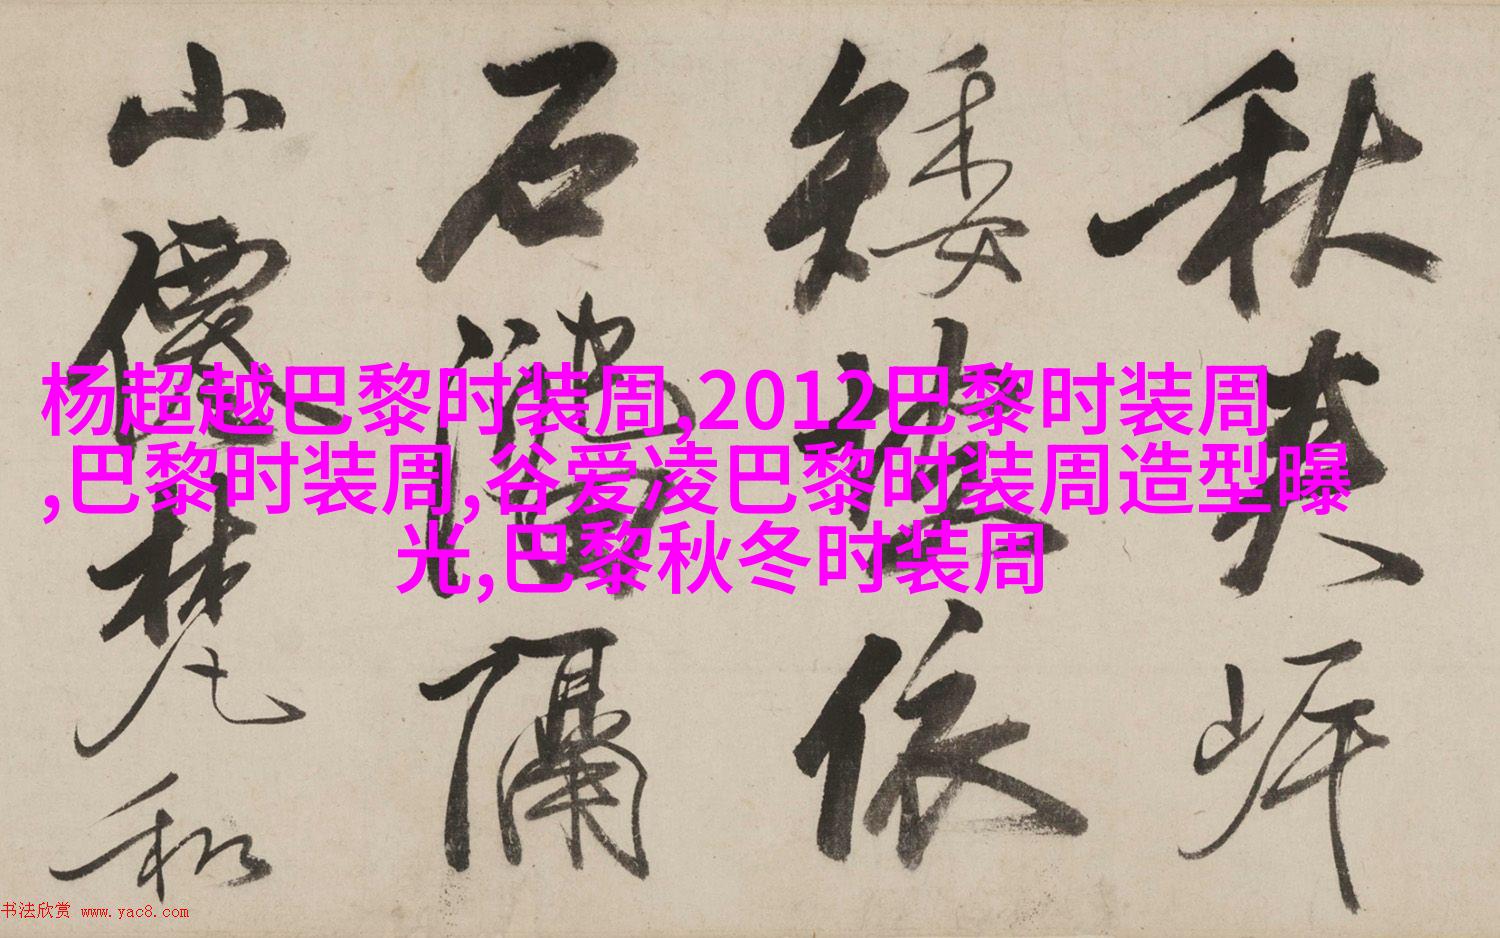 秋
矮 依
石 隔
山僊梵和
杨超越巴黎时装周,2012巴黎时装周
,巴黎时装周,谷爱凌巴黎时装周造型曝
光,巴黎秋冬时装周
书法欣赏 www.yac8.com